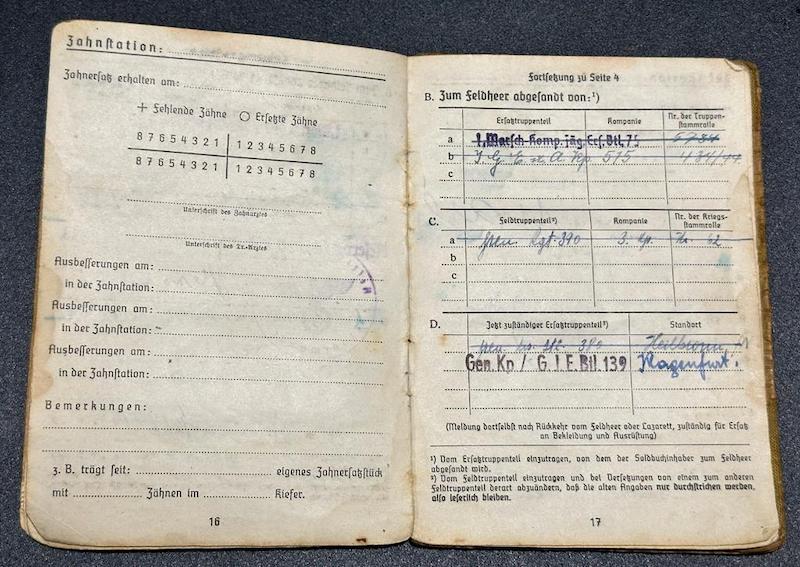 Zahnstation:
Zahnersatz erhalten am:
+ Fehlende Zähne ○ Ersetzte Zähne
8 7 6 5 4 3 2 1 | 1 2 3 4 5 6 7 8
8 7 6 5 4 3 2 1 | 1 2 3 4 5 6 7 8
Unterschrift des Zahnarztes
Unterschrift des Tr.-Arztes
Ausbesserungen am:
in der Zahnstation:
Ausbesserungen am:
in der Zahnstation:
Ausbesserungen am:
in der Zahnstation:
Bemerkungen:
z. B. trägt seit: eigenes Zahnersatzstück
mit Zähnen im Kiefer.
16
Fortsetzung zu Seite 4
B. Zum Feldheer abgesandt von:¹)
Ersatztruppenteil Kompanie Nr. der Truppen-
stammrolle
a 1. Marsch-Komp. Jäg. Ers. Btl. 75
b 515
c
C. Feldtruppenteil²) Kompanie Nr. der Kriegs-
stammrolle
a Gren. Rgt. 390 3. Kp. Nr. 62
b
c
D. Jetzt zuständiger Ersatztruppenteil³) Standort
380 Heilbronn
Gen. Kp / G. J. E. Btl. 139 Klagenfurt.
(Meldung dortselbst nach Rückkehr vom Feldheer oder Lazarett, zuständig für Ersatz
an Bekleidung und Ausrüstung)
¹) Vom Ersatztruppenteil einzutragen, von dem der Soldbuchinhaber zum Feldheer
abgesandt wird.
²) Vom Feldtruppenteil einzutragen und bei Versetzungen von einem zum anderen
Feldtruppenteil derart abzuändern, daß die alten Angaben nur durchstrichen werden,
also leserlich bleiben.
17